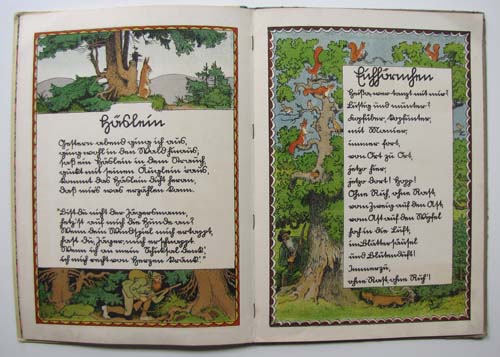 Häslein
Gestern abend ging ich aus,
ging wohl in den Wald hinaus,
saß ein Häslein in dem Strauch,
guckt mit seinen Äuglein raus,
kommt das Häslein dicht heran,
daß mirs was erzählen kann.
"Bist du nicht der Jägersmann,
hetz'st auf mich die Hunde an?
Wenn dein Windspiel mich ertappt,
hast du, Jäger, mich erschnappt.
Wenn ich an mein Schicksal denk',
ich mich recht von Herzen kränk'."
Eichhörnchen
Heißa, wer tanzt mit mir?
Lustig und munter!
Kopfüber, kopfunter,
mit Manier,
immer fort,
von Ort zu Ort,
jetzo hier,
jetzo dort! Hopp!
Ohne Ruh, ohne Rast,
vom Zweig auf den Ast,
vom Ast auf den Wipfel
hoch in die Luft,
im Blättersäusel
und Blütenduft!
Immerzu,
ohne Rast, ohne Ruh'!